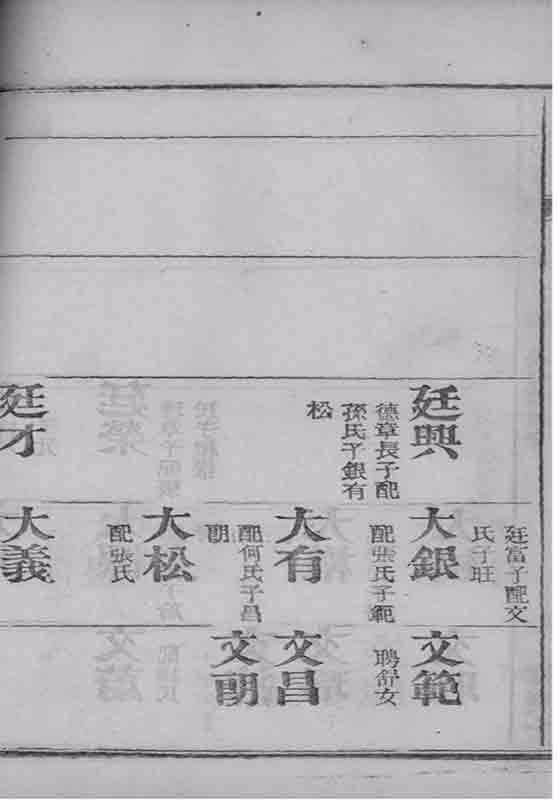 廷興
德章長子配
孫氏子銀有
松
廷才
廷富子配文
氏子旺
大銀
配張氏子範
大有
配何氏子昌
朙
大松
配張氏
大義
文範
聘舒女
文昌
文朙